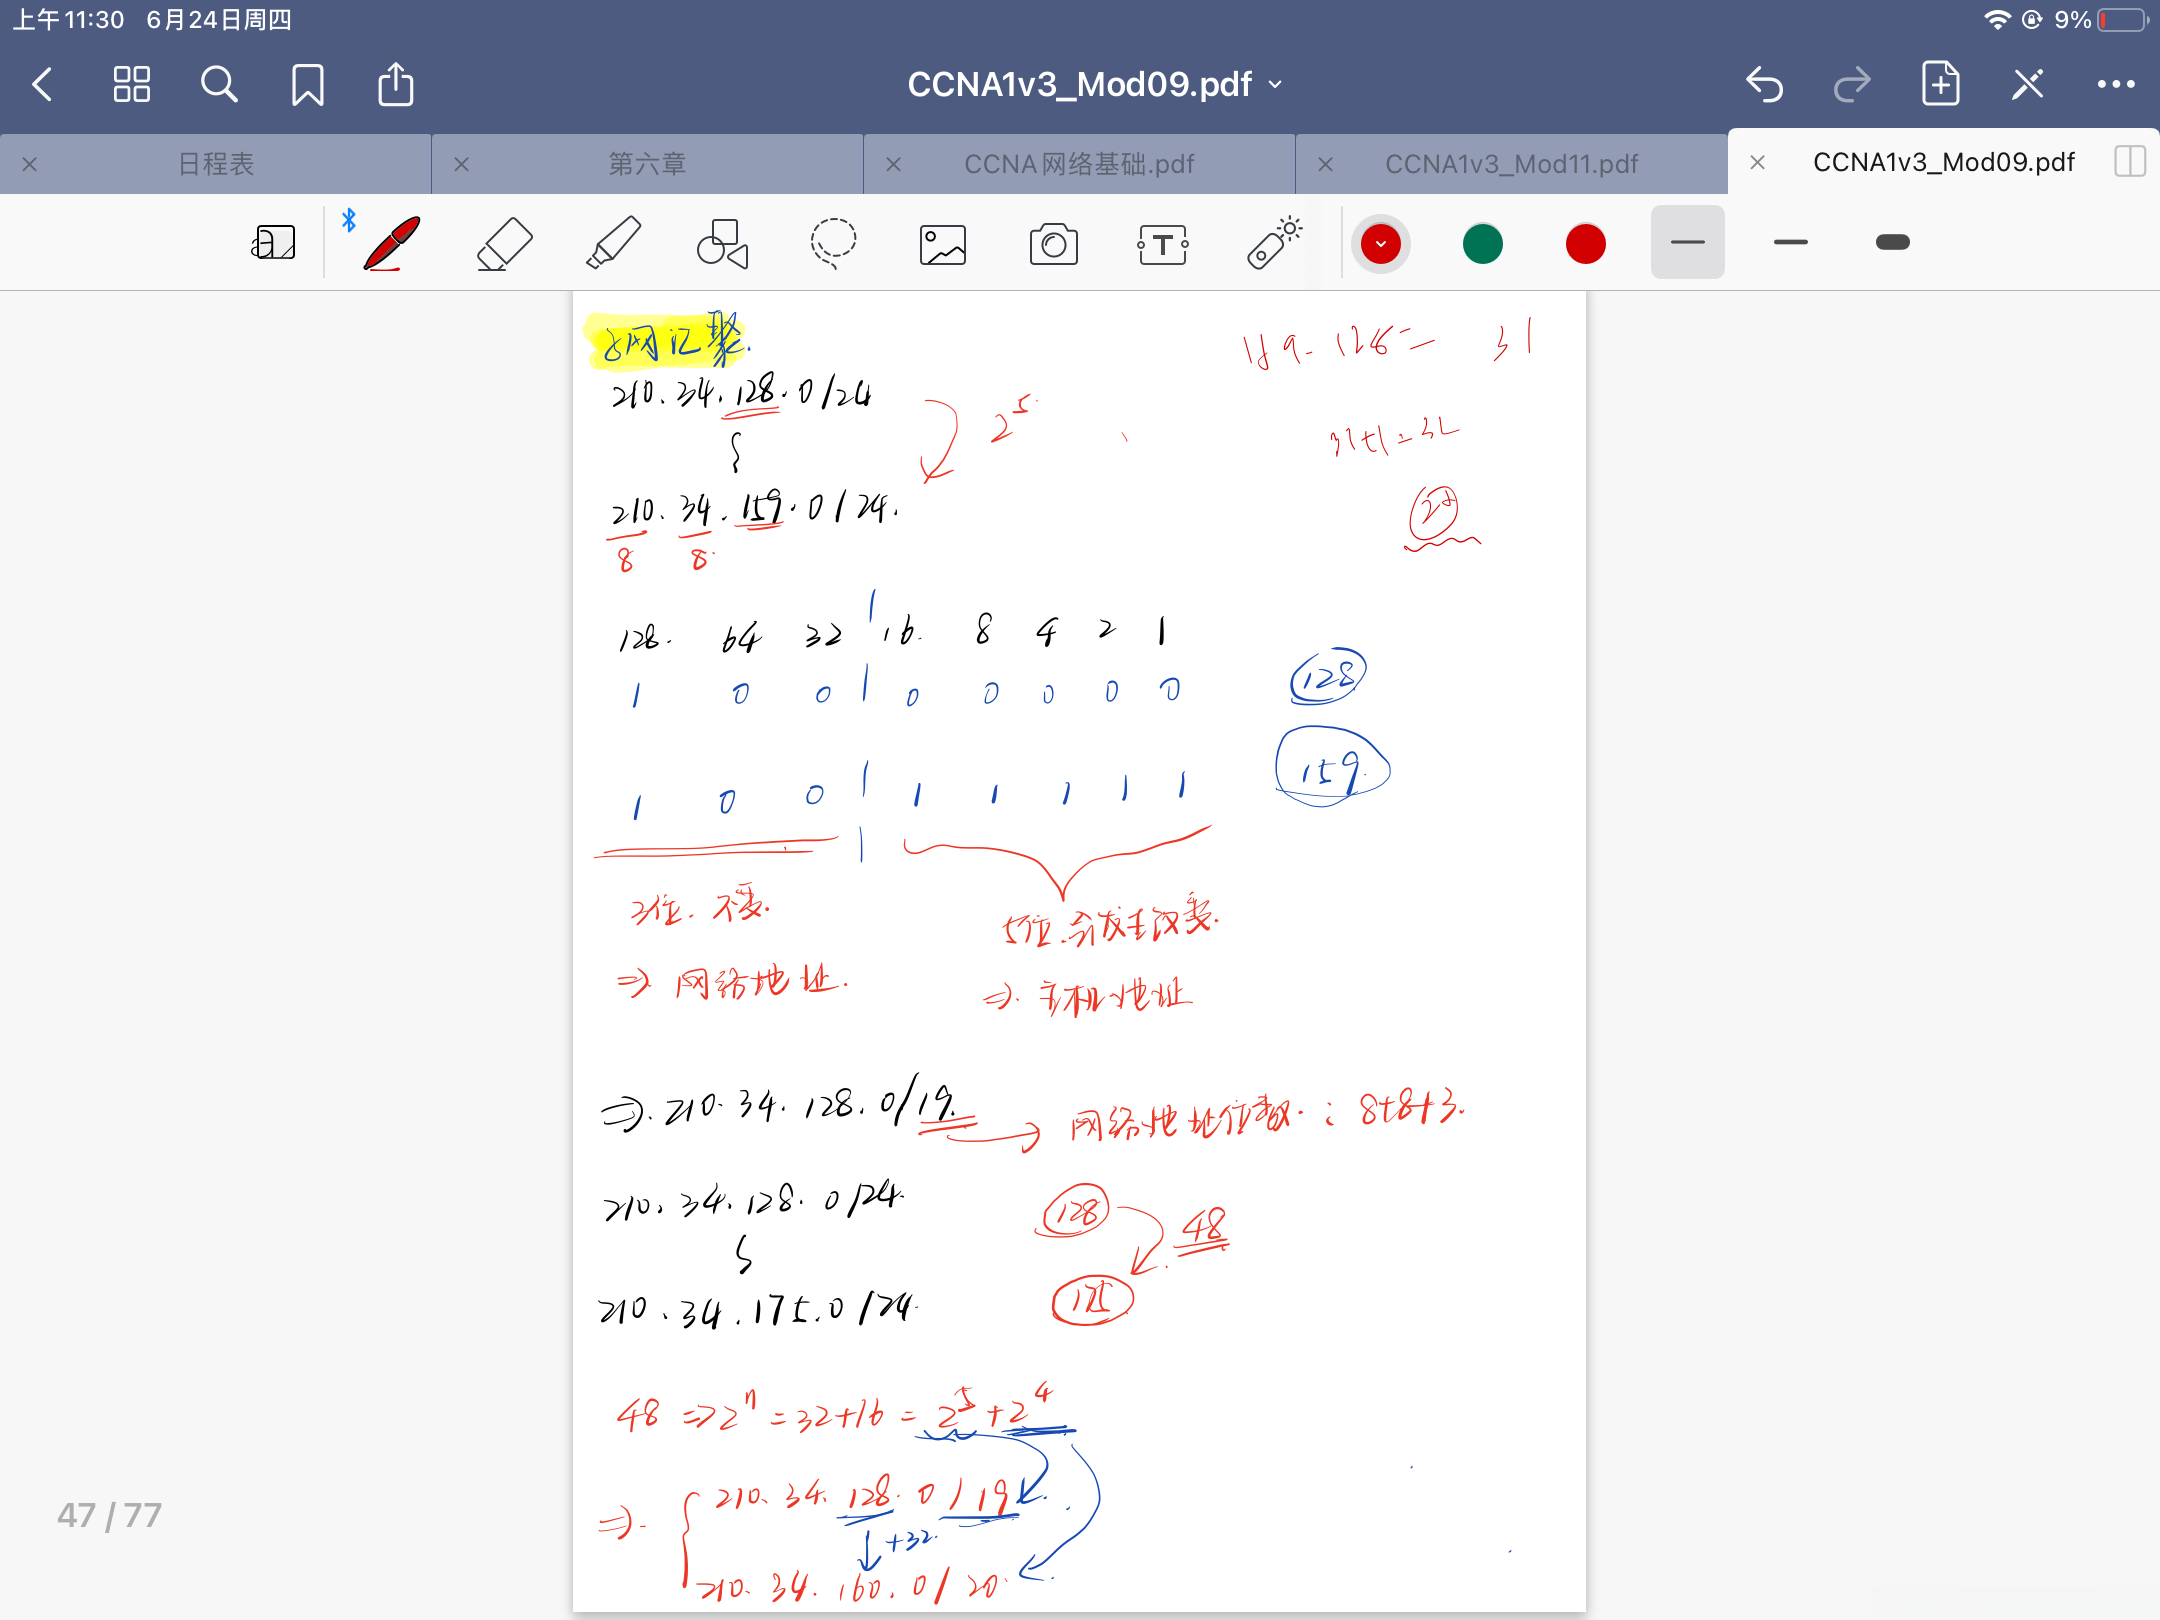 上午11:30 6月24日周四 9%
CCNA1v3_Mod09.pdf
日程表 第六章 CCNA网络基础.pdf CCNA1v3_Mod11.pdf CCNA1v3_Mod09.pdf
子网汇聚.
159-128= 31
210.34.128.0/24
2⁵
31+1=32
210.34.159.0/24.
2⁵
8 8
128 64 32 16 8 4 2 1
1 0 0 0 0 0 0 0 128
1 0 0 1 1 1 1 1 159
3位.不变. 5位.会发生改变.
⇒ 网络地址. ⇒ 主机地址
⇒ 210.34.128.0/19 → 网络地址位数: 8+8+3.
210.34.128.0/24 128 48
210.34.175.0/24 175
48 => 2ⁿ = 32+16 = 2⁵+2⁴
⇒ { 210.34.128.0/19
+32
210.34.160.0/20
47 / 77